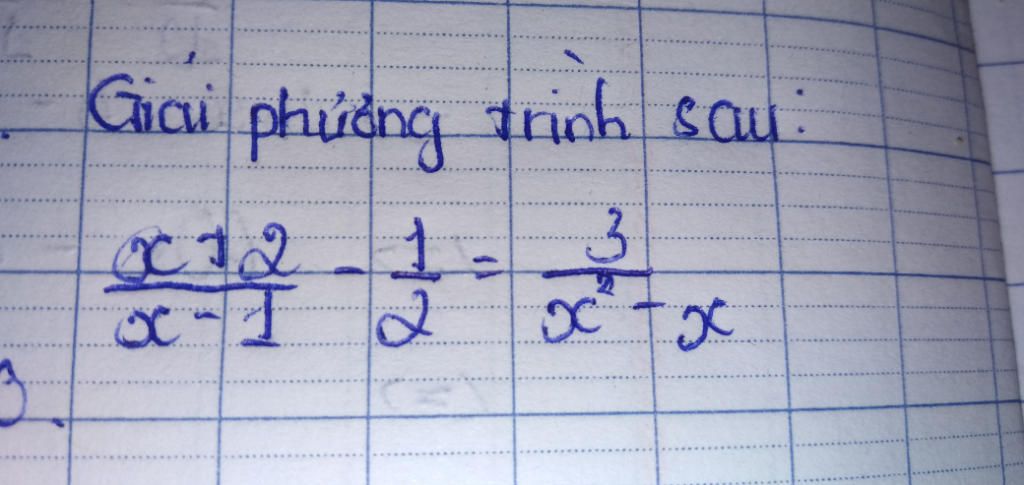 Giải phương trình sau:
x+2/x-1 - 1/2 = 3/x²-x
3.